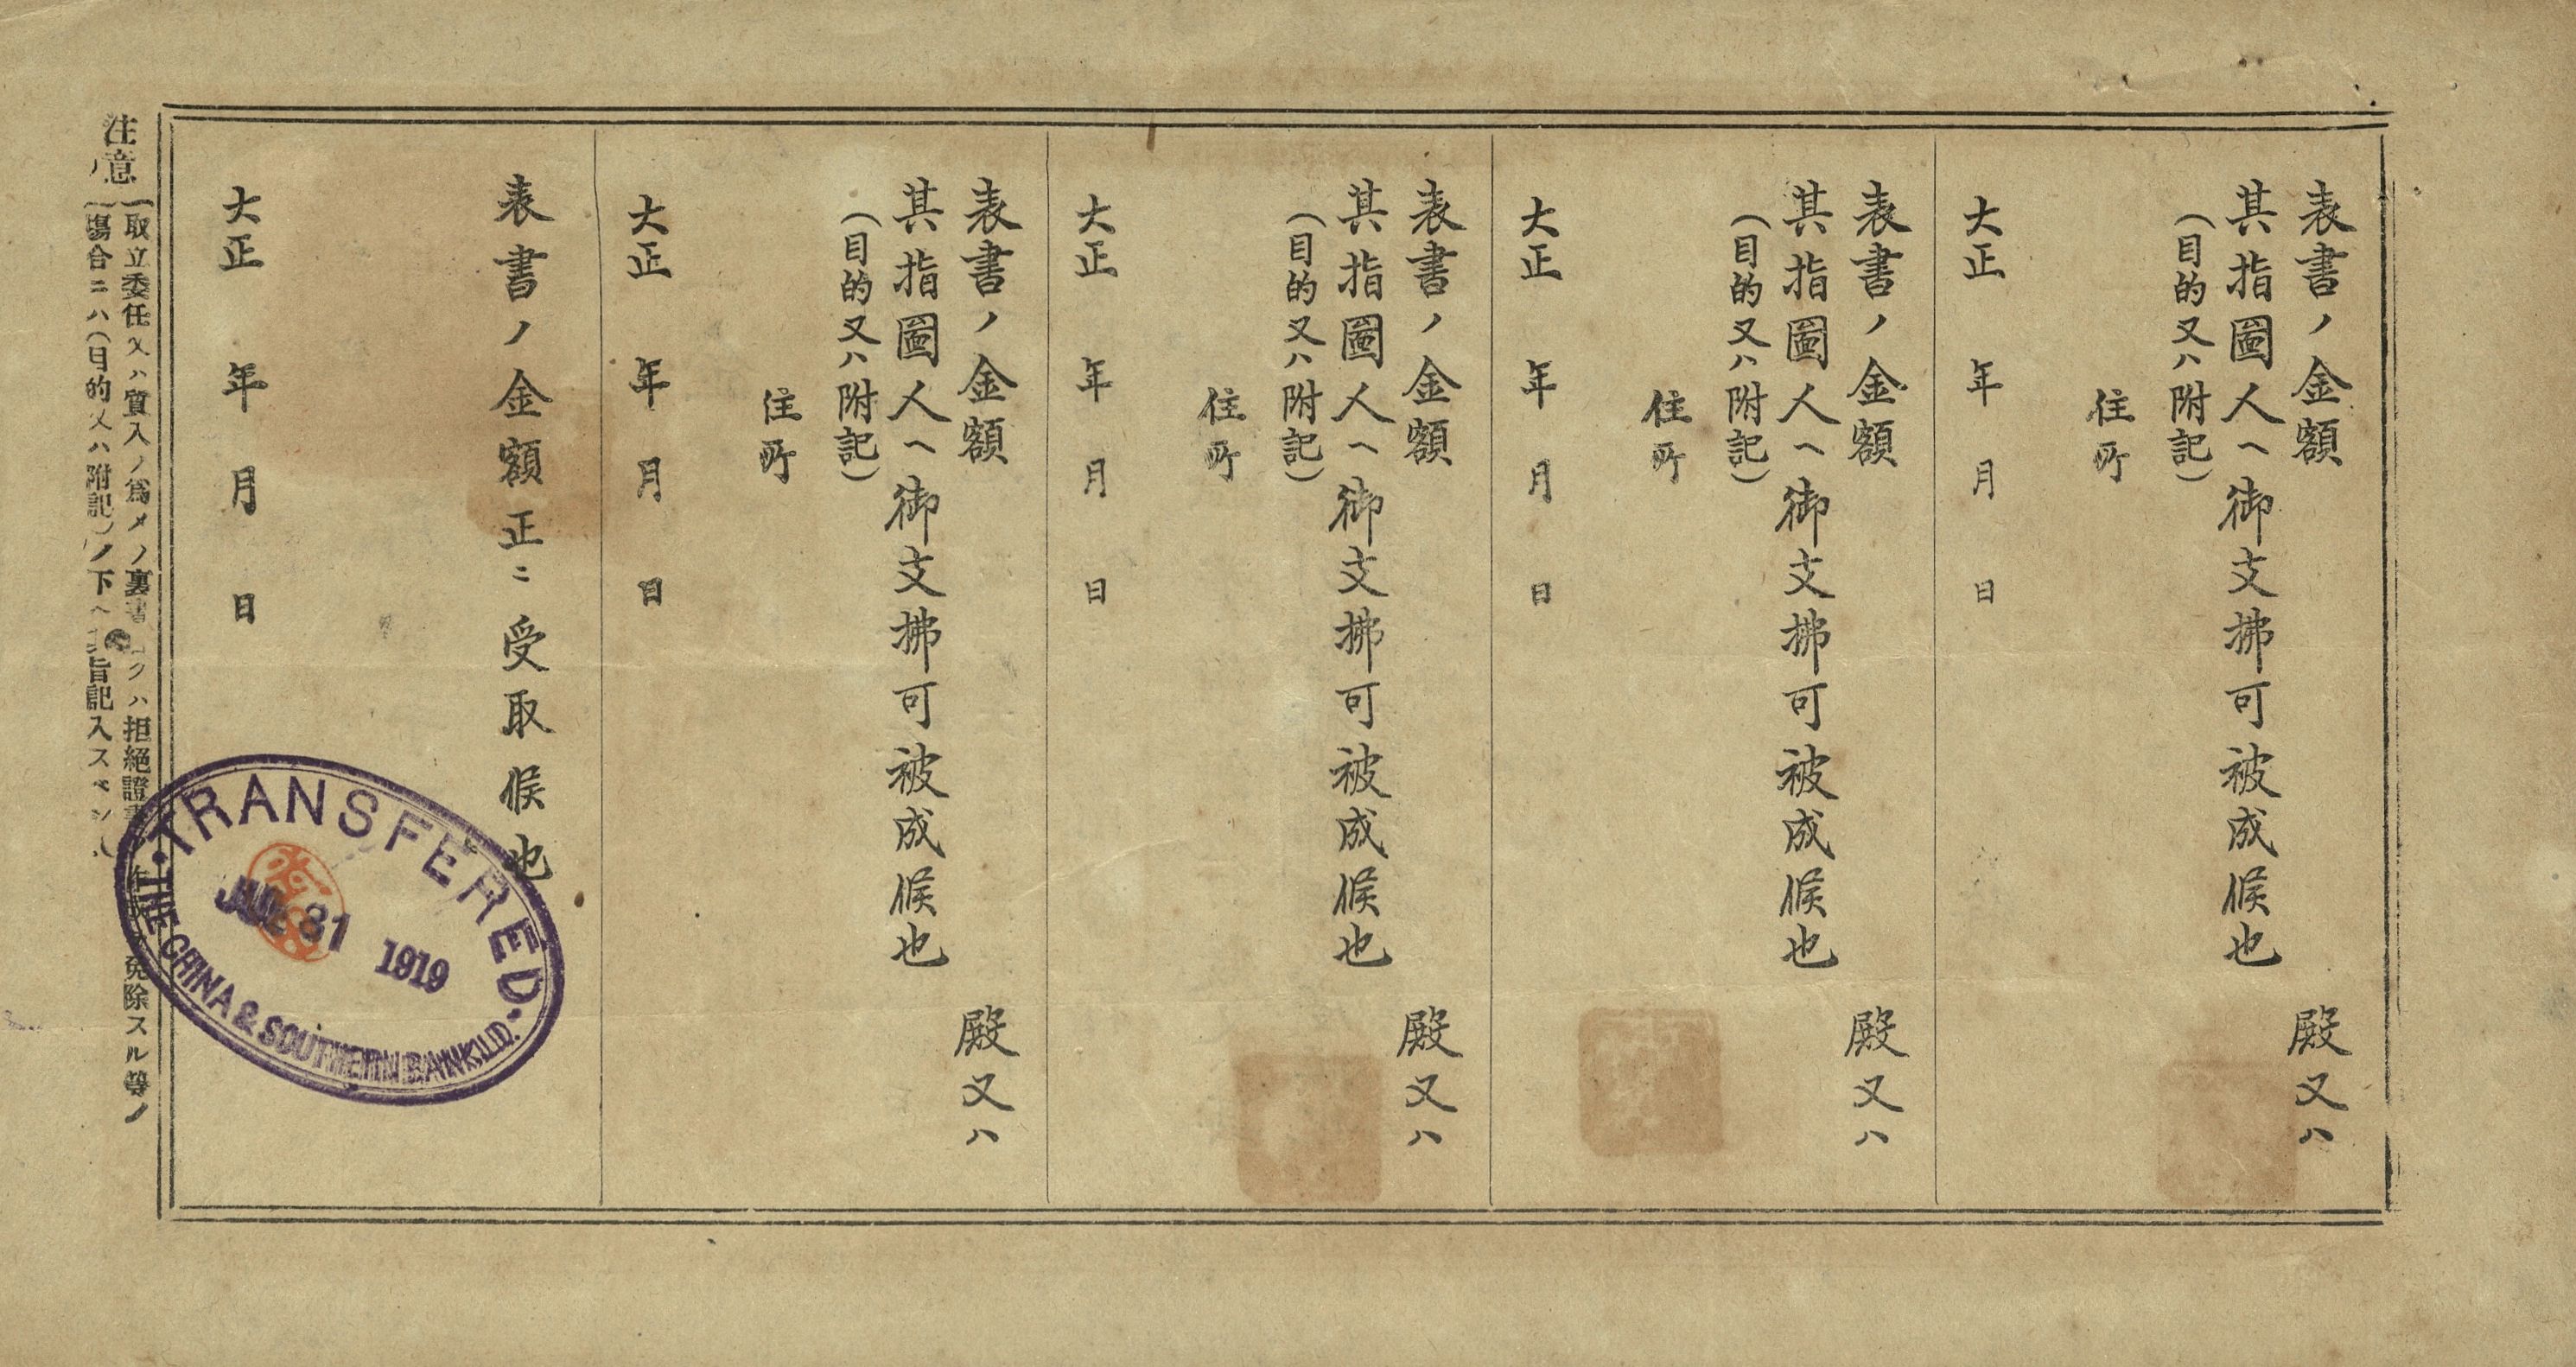 表書ノ金額　殿又ハ
其指圖人ヘ御支拂可被成候也
(目的又ハ附記)
住所
大正　年　月　日
表書ノ金額　殿又ハ
其指圖人ヘ御支拂可被成候也
(目的又ハ附記)
住所
大正　年　月　日
表書ノ金額　殿又ハ
其指圖人ヘ御支拂可被成候也
(目的又ハ附記)
住所
大正　年　月　日
表書ノ金額　殿又ハ
其指圖人ヘ御支拂可被成候也
(目的又ハ附記)
住所
大正　年　月　日
表書ノ金額正ニ受取候也
大正　年　月　日
注意
取立委任又ハ質入ノ爲メノ裏書 クハ拒絕證書 免除スル等ノ
塲合ニハ(目的又ハ附記)ノ下ヘ 旨記入スベシ
TRANSFERED
JUL 31 1919
THE CHINA & SOUTHERN BANK LTD.